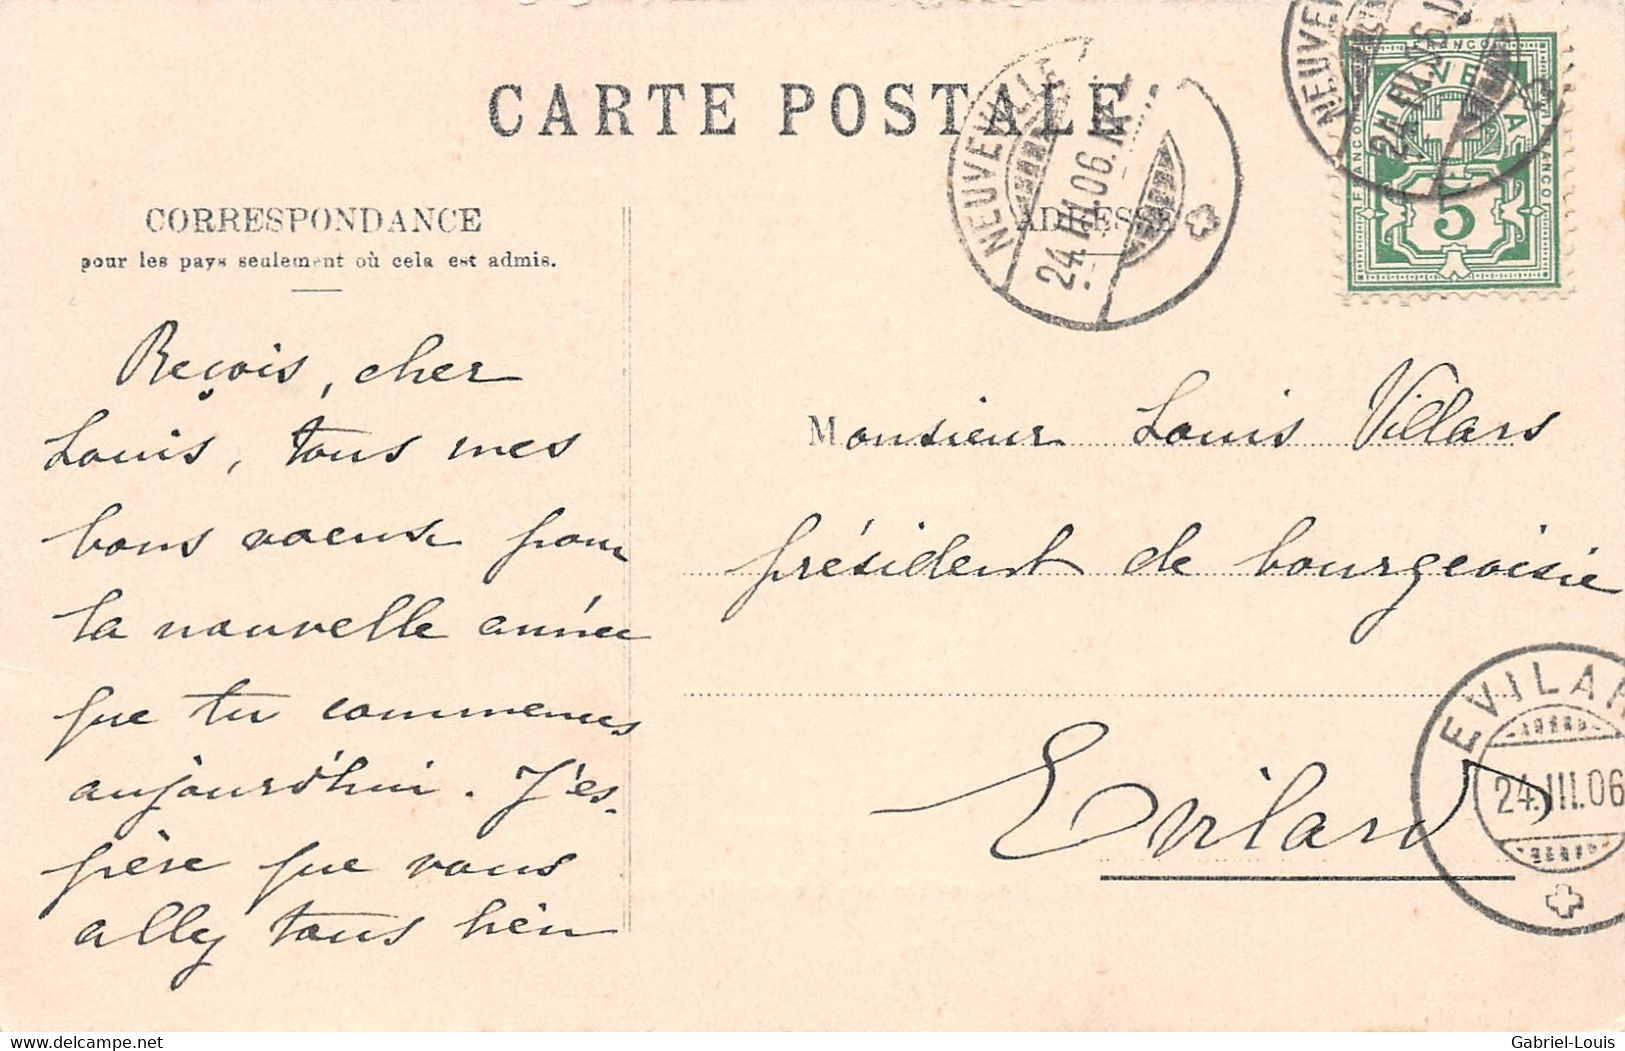 CARTE POSTALE
CORRESPONDANCE
pour les pays seulement où cela est admis.
Reçois, cher
Louis, tous mes
bons voeux pour
la nouvelle année
que tu commences
aujourd'hui. J'es-
père que vous
allez tous bien
ADRESSE
Monsieur Louis Villars
président de bourgeoisie
Evilard
NEUVEVILLE
24.III.06.IX
NEUVEV
FRANCO
HELVETIA
FRANCO
FRANCO
5
EVILAR
24.III.06
www.delcampe.net
Gabriel-Louis